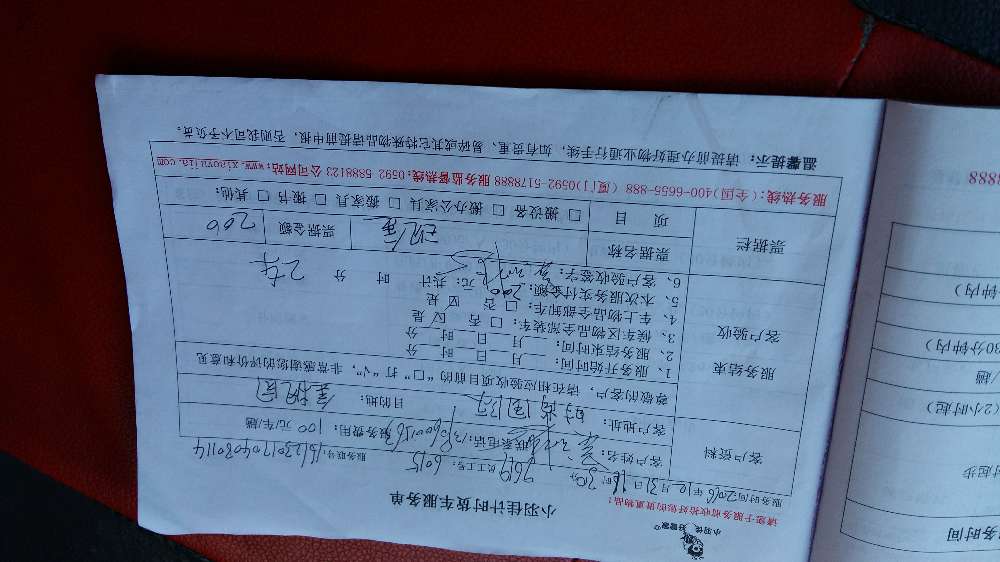 小羽佳计时货车服务单
请您于服务前收拾好您的贵重物品!
服务时间:2016年12月31日16时30分
员工工号:6015
服务联号:161230170408J0114
客户资料
客户姓名:
联系电话:
服务费用:100元/车/趟
客户地址:
目的地:
尊敬的客户,请在相应验收项目前的“□”打“√”,非常感谢您的评价和意见
服务结束
客户验收
1、服务开始时间: 月 日 时 分
2、服务结束时间: 月 日 时 分
3、候车区物品全部装车: □ 否 ☑ 是
4、车上物品全部卸车: □ 否 ☑ 是
5、本次服务实付金额:200元;共计 时 分 2车
6、客户验收签字:
票据栏
票据名称
现金
票据金额
200
项 目
□ 搬设备 □ 搬办公家具 □ 搬家具 □ 搬书 □ 其他:
服务热线:(全国)400-6655-888 (厦门)0592-5178888 服务监督热线:0592 5888123 公司网站:www.xiaoyujia.com
温馨提示:请提前办理好物业通行手续,如有贵重、易碎或其它特殊物品请提前申报,否则我司不予负责。
务时间
时起步
(2小时起)
/趟
30分钟内)
钟内)
8888